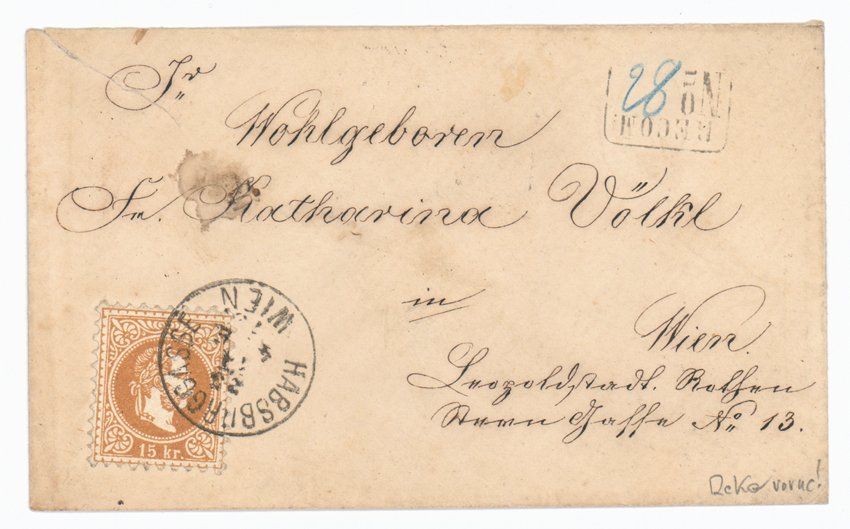 Ir
Wohlgeboren
Fr. Katharina Völkl
in
Wien.
Leopoldstadt. Rothen
Stern Gasse No. 13.
RECOM.
No 28
WIEN
HABSBURGERGASSE
15 kr.
Reko vorne!